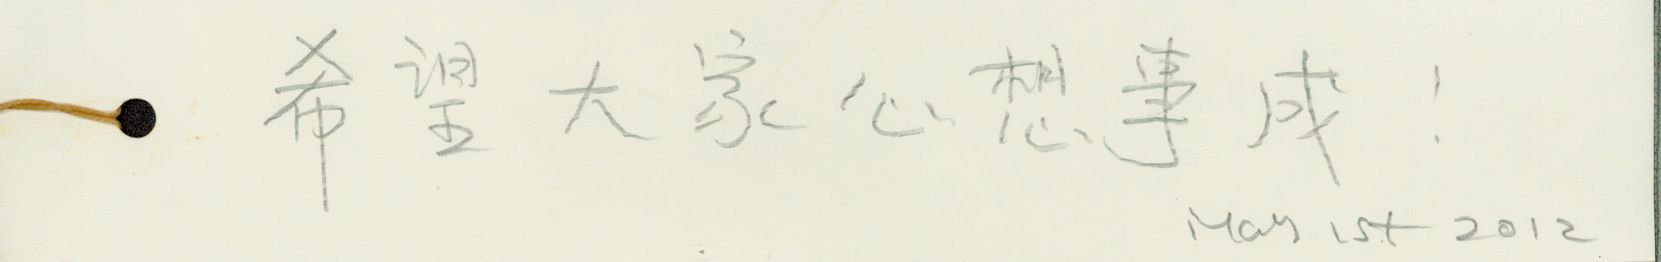 希望大家心想事成!
May 1st 2012